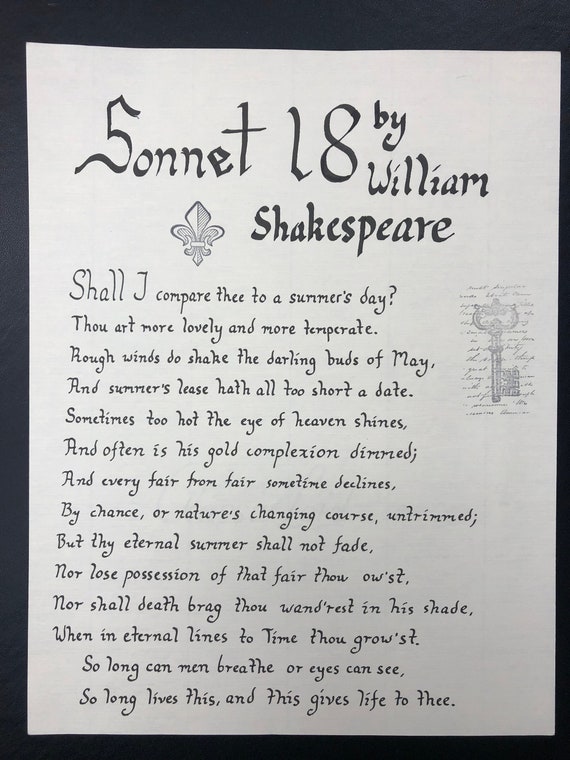 Sonnet 18 by
William
Shakespeare
Shall I compare thee to a summer's day?
Thou art more lovely and more temperate.
Rough winds do shake the darling buds of May,
And summer's lease hath all too short a date.
Sometimes too hot the eye of heaven shines,
And often is his gold complexion dimmed;
And every fair from fair sometime declines,
By chance, or nature's changing course, untrimmed;
But thy eternal summer shall not fade,
Nor lose possession of that fair thou ow'st,
Nor shall death brag thou wand'rest in his shade,
When in eternal lines to Time thou grow'st.
So long can men breathe or eyes can see,
So long lives this, and this gives life to thee.